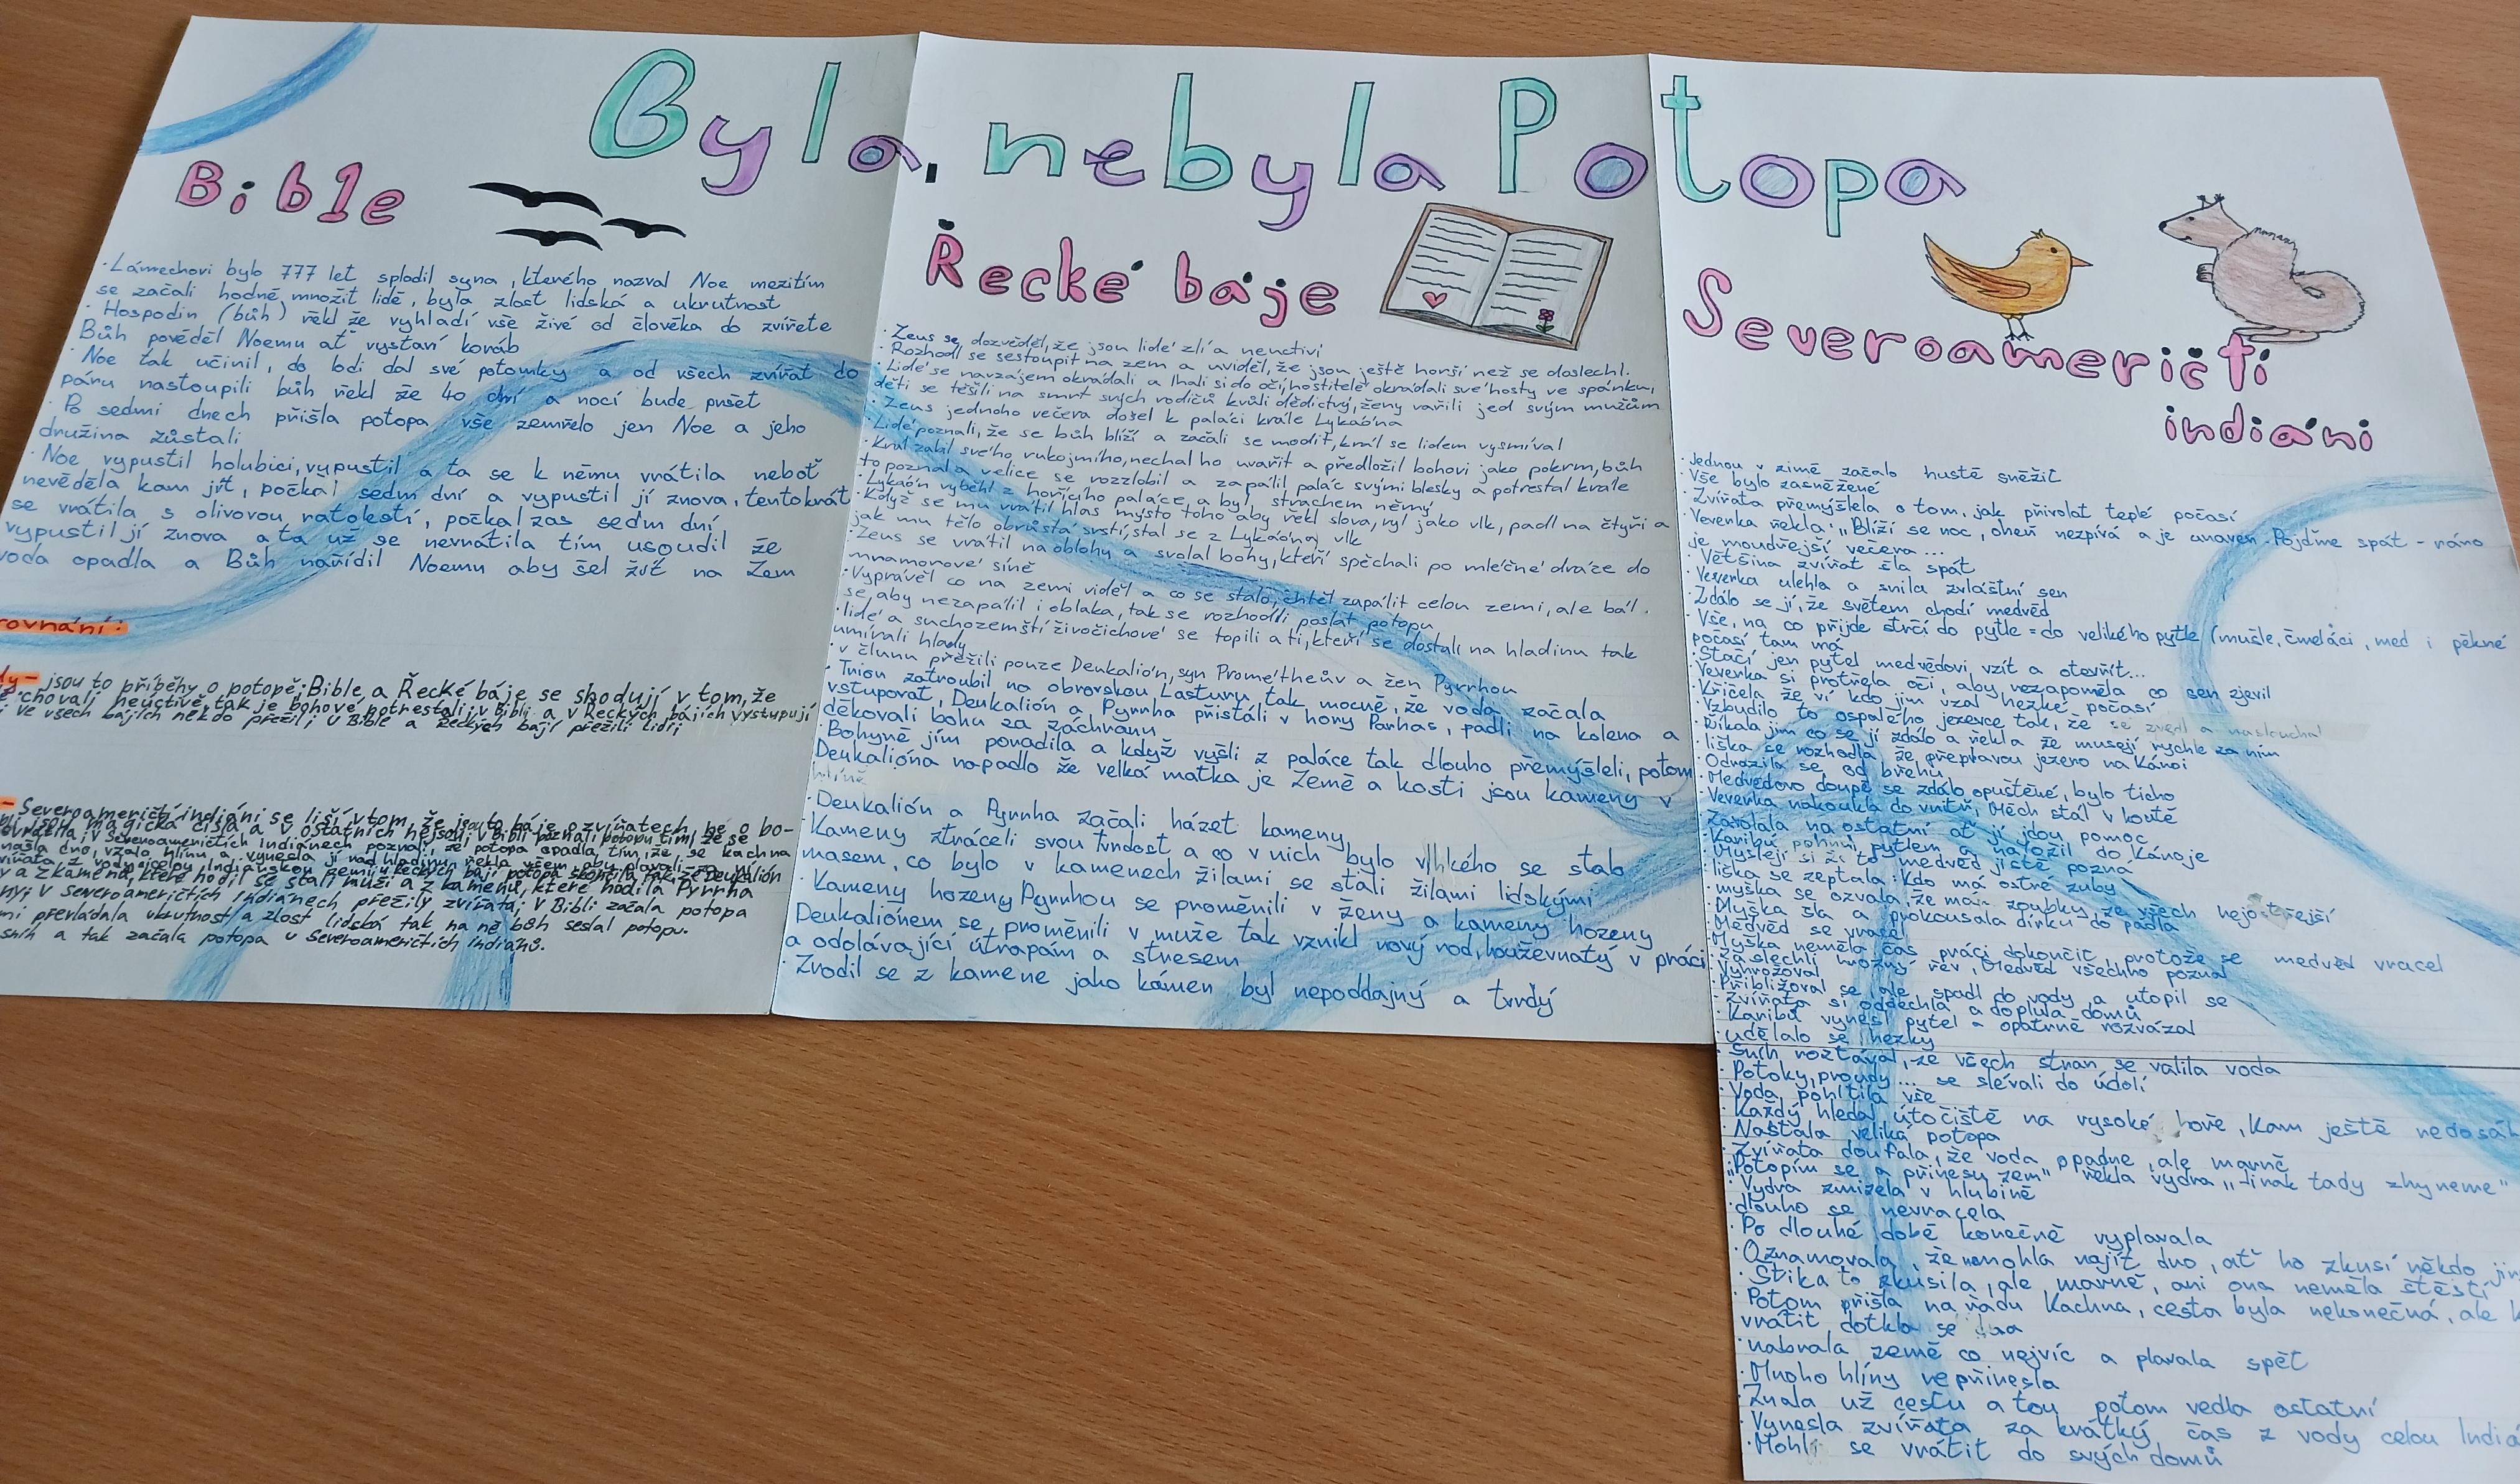 Byla, nebyla Potopa
Bible
· Lámechovi bylo 777 let splodil syna, kterého nazval Noe mezitím
se začali hodně množit lidé, byla zlost lidská a ukrutnost
· Hospodin (bůh) řekl že vyhladí vše živé od člověka do zvířete
Bůh pověděl Noemu ať vystaví koráb
· Noe tak učinil, do lodi dal své potomky a od všech zvířat do
páru nastoupili bůh řekl že 40 dní a nocí bude pršet
· Po sedmi dnech přišla potopa vše zemřelo jen Noe a jeho
družina zůstali
· Noe vypustil holubici, vypustil a ta se k němu vrátila neboť
nevěděla kam jít, počkal sedm dní a vypustil jí znova, tentokrát
se vrátila s olivovou ratolestí, počkal zas sedm dní
vypustil jí znova a ta už se nevrátila tím usoudil že
voda opadla a Bůh nařídil Noemu aby šel žít na Zem
rovnání:
dy – jsou to příběhy o potopě; Bible a Řecké báje se shodují v tom, že
chovali neuctivě, tak je bohové potrestali; v Bibli a v Řeckých bájích vystupují
i ve všech bájích někdo přežil; v Bible a Řeckých bájí přežili lidi;
– Severoameričtí indiáni se liší v tom, že jsou to báje o zvířatech ne o bo-
jsou magická čísla a v ostatních nejsou; v Bibli poznali potopu tím, že se
vrátila; v Severoamerických Indiánech poznali, že potopa opadla tím, že se kachna
našla dno, vzala hlínu a vynesla jí nad hladinu, řekla všem, aby plavali za
zvířata z vody celou Indiánskou zemi; u Řeckých bájí potopa skončila tak, že Deukalión
y a z kamenů, které hodil se stali muži a z kamenů, které hodila Pyrrha
ny; v Severoamerických Indiánech přežily zvířata; v Bibli začala potopa
mi převládala ukrutnost a zlost lidská tak na ně bůh seslal potopu.
sníh a tak začala potopa u Severoamerických Indiánů.
Řecké báje
· Zeus se dozvěděl, že jsou lidé zlí a neuctiví
· Rozhodl se sestoupit na zem a uviděl, že jsou ještě horší než se doslechl.
· Lidé se navzájem okrádali a lhali si do očí, hostitelé okrádali své hosty ve spánku,
děti se těšili na smrt svých rodičů kvůli dědictvý, ženy vařili jed svým mužům
· Zeus jednoho večera došel k paláci krále Lykaóna
· Lidé poznali, že se bůh blíží a začali se modlit, král se lidem vysmíval
· Král zabil svého rukojmího, nechal ho uvařit a předložil bohovi jako pokrm, bůh
to poznal a velice se rozzlobil a zapálil palác svými blesky a potrestal krále
· Lykaón vyběhl z hořícího paláce a byl strachem němý
· Když se mu vrátil hlas mýsto toho aby řekl slova, vyl jako vlk, padl na čtyři a
jak mu tělo obrůstá srstí, stal se z Lykaóna vlk
· Zeus se vrátil na oblohy a svolal bohy, kteří spěchali po mléčné dráze do
mramorové síně
· Vyprávěl co na zemi viděl a co se stalo, chtěl zapálit celou zemi, ale bál
se, aby nezapálil i oblaka, tak se rozhodli poslat potopu
· lidé a suchozemští živočichové se topili a ti, kteří se dostali na hladinu tak
umírali hlady
· v člunu přežili pouze Deukalión, syn Prométheův a žen Pyrrhou
· Trion zatroubil na obrovskou Lasturu tak mocně, že voda začala
vstupovat, Deukalión a Pyrrha přistáli v hory Parnas, padli na kolena a
děkovali bohu za záchranu
· Bohyně jím poradila a když vyšli z paláce tak dlouho přemýšleli, potom
Deukalióna napadlo že velká matka je Země a kosti jsou kameny v
hlíně
· Deukalión a Pyrrha začali házet kameny
· Kameny ztráceli svou tvrdost a co v nich bylo vlhkého se stalo
masem, co bylo v kamenech žilami se stali žilami lidskými
· Kameny hozeny Pyrrhou se proměnili v ženy a kameny hozeny
Deukaliónem se proměnili v muže tak vznikl nový rod, houževnatý v práci
a odolávající útrapám a stresem
· Zrodil se z kamene jako kámen byl nepoddajný a tvrdý
Severoameričtí
indiáni
· Jednou v zimě začalo hustě sněžit
· Vše bylo zasněžené
· Zvířata přemýšlela o tom, jak přivolat teplé počasí
· Veverka řekla: „Blíží se noc, oheň nezpívá a je unaven. Pojďme spát – ráno
je moudřejší večera...
· Většina zvířat šla spát
· Veverka ulehla a snila zvláštní sen
· Zdálo se jí, že světem chodí medvěd
· Vše, na co přijde strčí do pytle = do velikého pytle (mušle, čmeláci, med i pěkné
počasí tam má
· Stačí jen pytel medvědovi vzít a otevřít...
· Veverka si protřela oči, aby nezapoměla co sen zjevil
· Křičela že ví kdo jim vzal hezké počasí
· Vzbudilo to ospalého jezevce tak, že se zvedl a naslouchal
· Říkala jim co se jí zdálo a řekla že musejí rychle za ním
· liška se rozhodla že přepravou jezero na kánoi
· Odrazila se od břehu
· Medvědovo doupě se zdálo opuštěné, bylo ticho
· Veverka nakoukla do vnitř, Měch stál v koutě
· Zavolala na ostatní ať jí jdou pomoc
· Karibu pohnul pytlem a naložil do kánoje
· Myslejí si že to medvěd jistě pozná
· liška se zeptala: kdo má ostré zuby
· myška se ozvala, že má zoubky ze všech nejostřejší
· Myška šla a prokousala dírku do pádla
· Medvěd se vracel
· Myška neměla čas práci dokončit, protože se medvěd vracel
· Zaslechli hrozný řev, Medvěd všechno poznal
· Vyhrožoval
· Přibližoval se, ale spadl do vody a utopil se
· Zvířata si oddechla a doplula domů
· Karibu vynesl pytel a opatrně rozvázal
· udělalo se hezky
· Sníh roztával, ze všech stran se valila voda
· Potoky, proudy... se slévali do údolí
· Voda pohltila vše
· Každý hledal útočiště na vysoké hoře, kam ještě nedosáh
· Nastala veliká potopa
· Zvířata doufala, že voda opadne, ale marně
· „Potopím se a přinesu zem" řekla vydra „jinak tady zhyneme"
· Vydra zmizela v hlubině
· dlouho se nevracela
· Po dlouhé době konečně vyplavala
· Oznamovala, že nemohla najít dno, ať ho zkusí někdo jin
· Štika to zkusila, ale marně, ani ona neměla štěstí
· Potom přišla na řadu kachna, cesta byla nekonečná, ale
vrátit dotkla se dna
· nabrala země co nejvíc a plavala spět
· Mnoho hlíny nepřinesla
· Znala už cestu a tou potom vedla ostatní
· Vynesla zvířata za krátký čas z vody celou Indiá
· Mohli se vrátit do svých domů